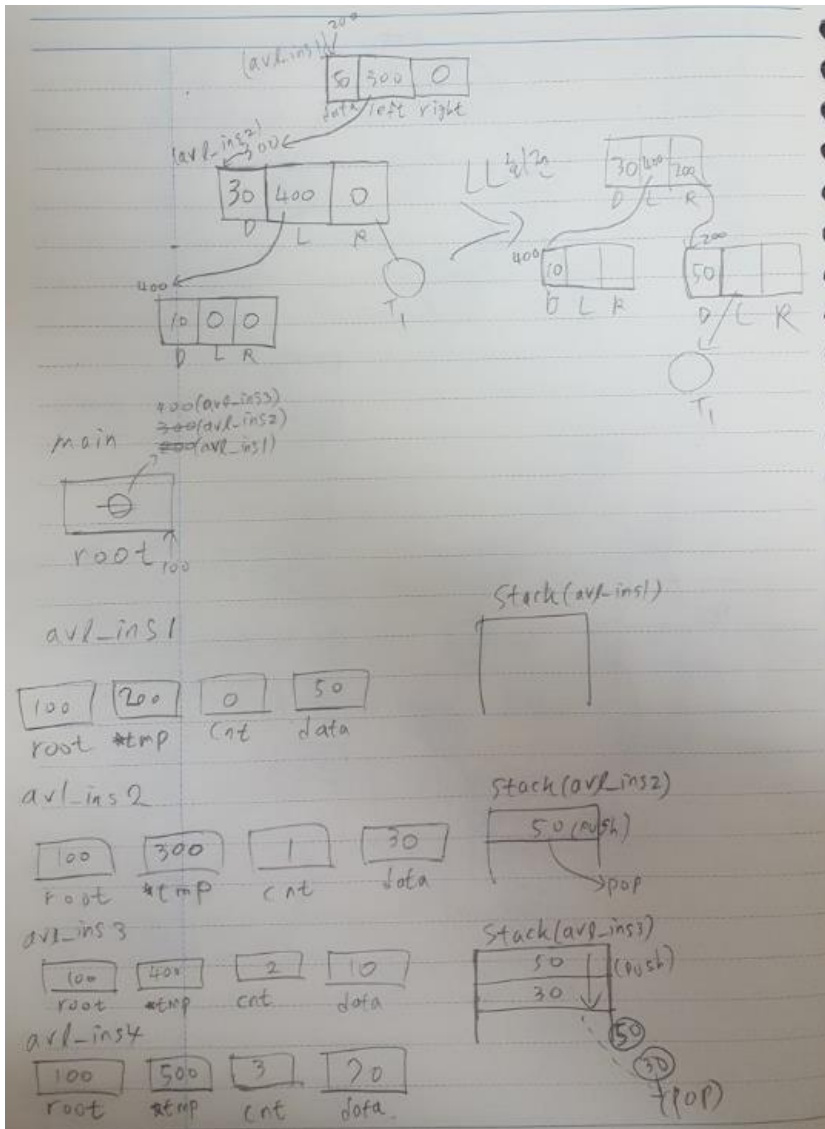 200
(avl_ins1)
50 300 0
data left right
(avl_ins2)
300
30 400 0
D L R
T1
400
10 0 0
D L R
LL회전
30 400 200
D L R
400
10
D L R
200
50
D L R
T1
main
400(avl_ins3)
300(avl_ins2)
200(avl_ins1)
root 100
avl_ins1
100 200 0 50
root *tmp cnt data
Stack(avl_ins1)
avl_ins2
100 300 1 30
root *tmp cnt data
Stack(avl_ins2)
50(push)
pop
avl_ins3
100 400 2 10
root *tmp cnt data
Stack(avl_ins3)
50
30
(push)
50
30
(pop)
avl_ins4
100 500 3 20
root *tmp cnt data